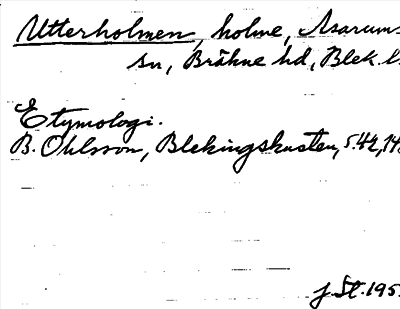 Utterholmen, holme, Asarums
sn, Bräkne hd, Blek. l
Etymologi.
B. Ohlsson, Blekingskusten, s. 42, 14
J. St. 195